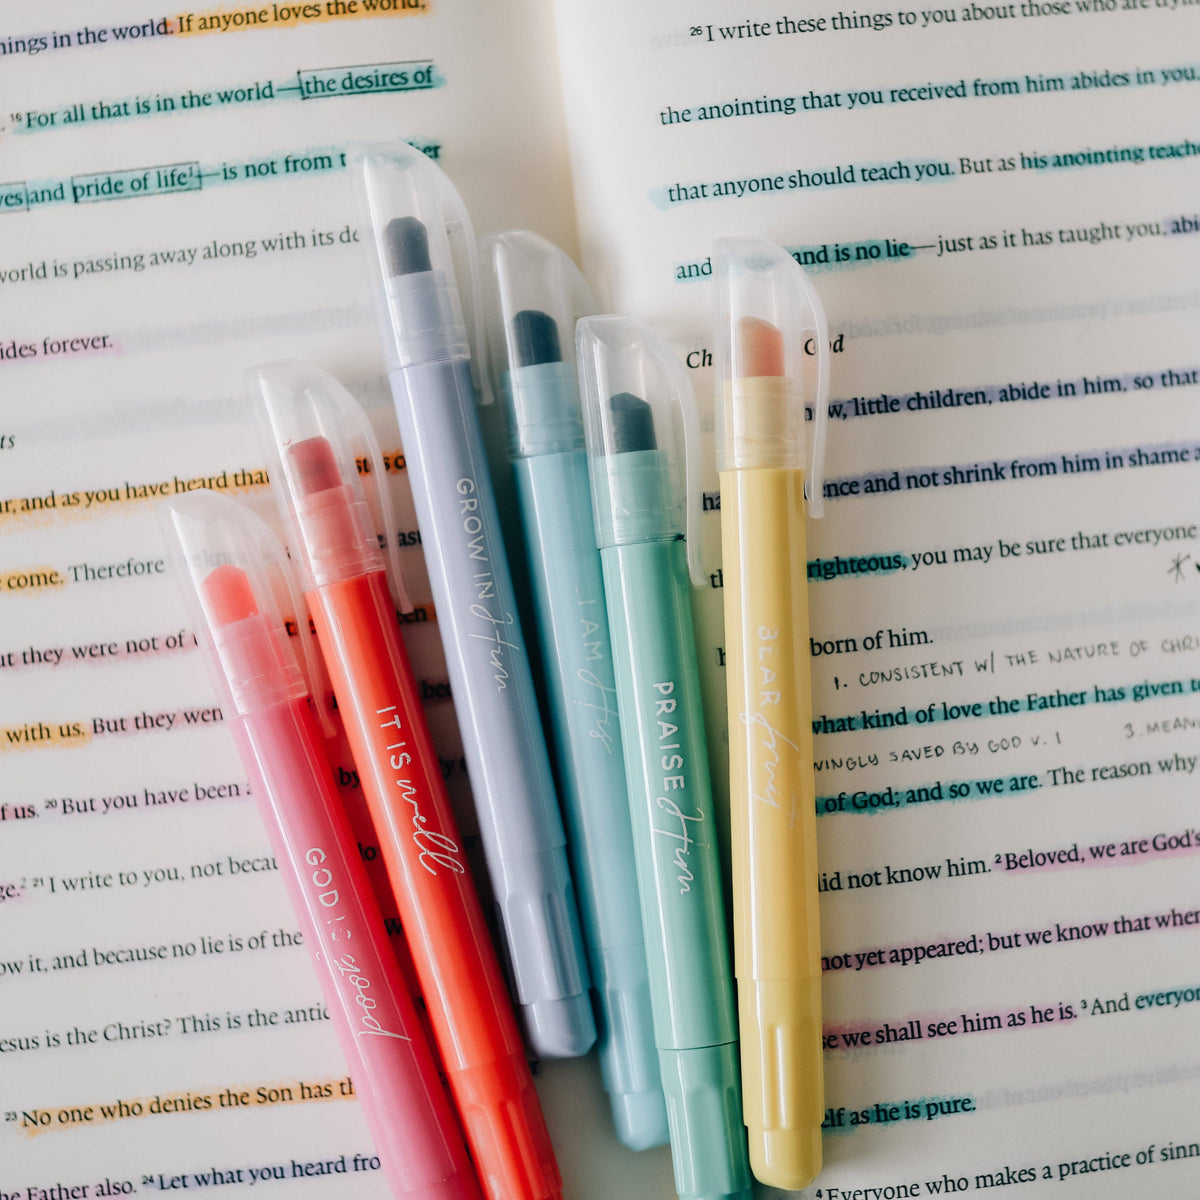 things in the world. If anyone loves the world,
16 For all that is in the world—the desires of
and pride of life1—is not from
world is passing away along with its
forever.
and as you have heard that
come. Therefore
they were not of
with us. But they
of us. 20 But you have been
2 21 I write to you, not
it, and because no lie is of the
Jesus is the Christ? This is the
23 No one who denies the Son has
the Father also. 24 Let what you heard
GOD is good
IT IS well
GROW IN Him
I AM His
PRAISE Him
BEAR fruit
26 I write these things to you about those who are
the anointing that you received from him abides in you,
that anyone should teach you. But as his anointing
and and is no lie—just as it has taught you,
God
little children, abide in him, so that
and not shrink from him in shame
righteous, you may be sure that everyone
born of him.
1. CONSISTENT W/ THE NATURE OF
what kind of love the Father has given
SAVED BY GOD V. 1 3.
of God; and so we are. The reason why
did not know him. 2 Beloved, we are God's
not yet appeared; but we know that when
we shall see him as he is. 3 And
as he is pure.
4 Everyone who makes a practice of